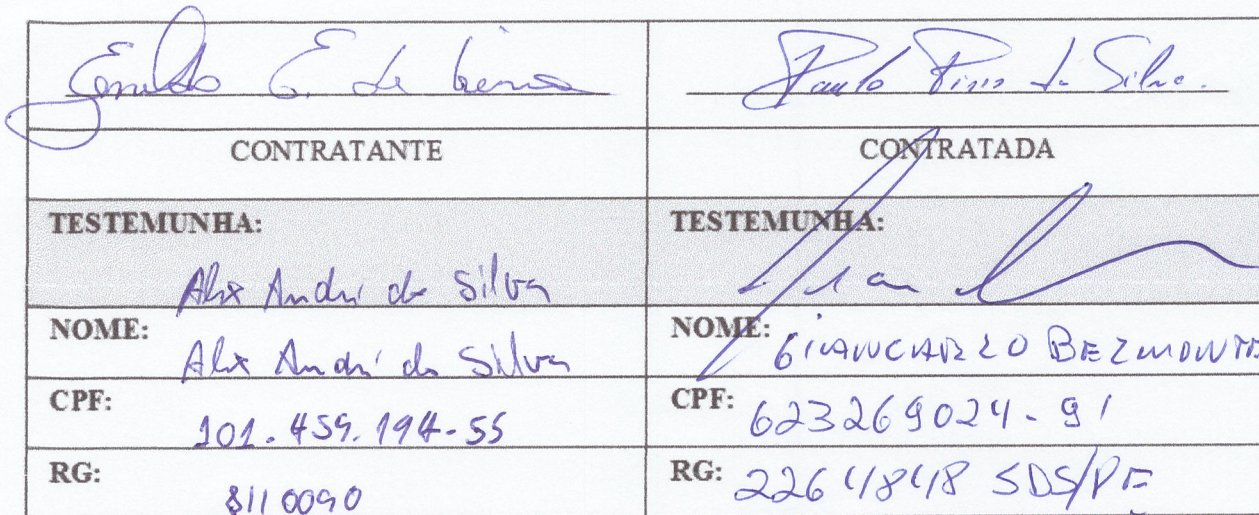 Paulo da Silva.
CONTRATANTE
CONTRATADA
TESTEMUNHA:
Alex André da Silva
TESTEMUNHA:
NOME:
Alex André da Silva
NOME: GIANCARLO BEZMONTE
CPF:
101.459.194-55
CPF: 623269024-91
RG:
8110090
RG: SDS/PE